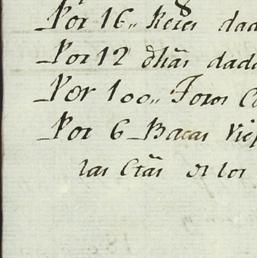 Por 16,, Reses dad
Por 12 dhãs dad
Por 100,, Toros C
Por 6 Bacas Viej
las Ctãs de los